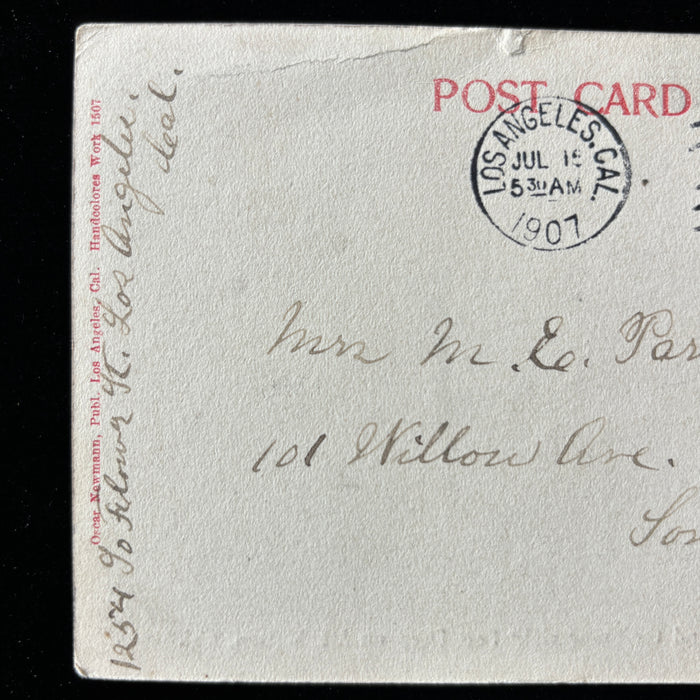 POST CARD
LOS ANGELES, CAL.
JUL 15
5 30 AM
1907
Mrs M. E. Par
101 Willow Ave.
Som
1254 So Flower St. Los Angeles.
Cal.
Oscar Newmann, Publ. Los Angeles, Cal. Handcolores Work 1507